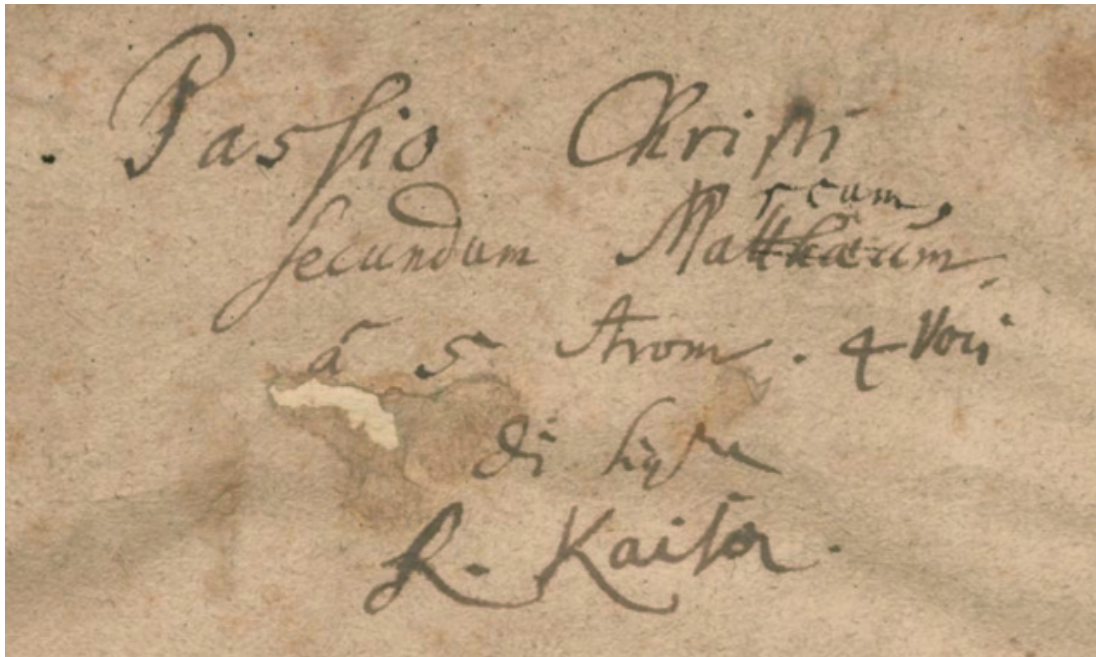 Passio Christi
secundum Matthæum rcum,
à 5 Strom. 4 Voci
di Sigre
R. Kaiser.